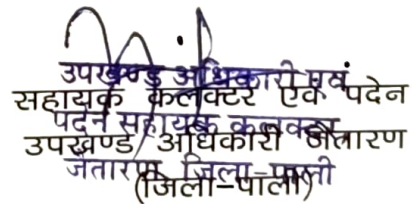 उपखण्ड अधिकारी एवं
सहायक कलक्टर एवं पदेन
पदेन सहायक कलक्टर
उपखण्ड अधिकारी जैतारण
जैतारण जिला-पाली
(जिला-पाली)